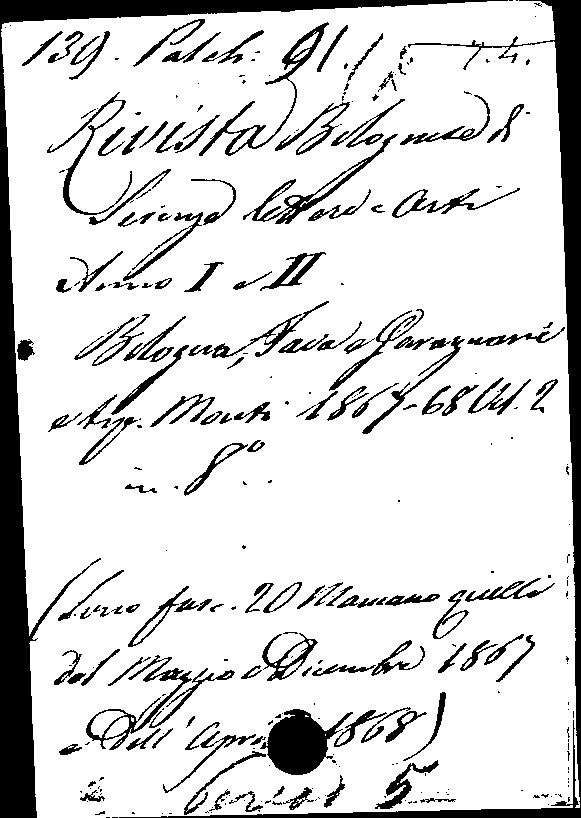 139. Palch: 91. 7.4.
Rivista Bolognese di
Scienze lettere e Arti
Anno I e II
Bologna, Fava e Garagnani
e typ. Monti 1867-68 Vol. 2
in. 8°
(Sono fasc. 20 Mancano quelli
dal Maggio e Dicembre 1867
e dell' Aprile 1868)
Period 5